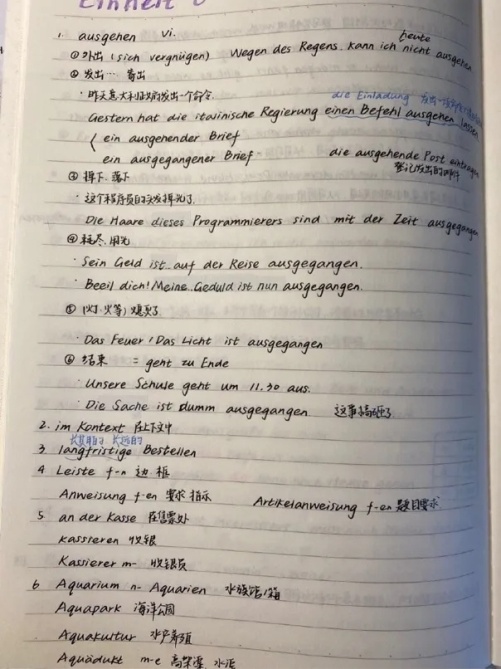 Einheit
1. ausgehen vi.
①外出 (sich vergnügen) Wegen des Regens kann ich heute nicht ausgehen
②发出… 寄出
·昨天意大利政府发出一个命令. die Einladung
Gestern hat die itainische Regierung einen Befehl ausgehen lassen
ein ausgehender Brief
ein ausgegangener Brief die ausgehende Post eintragen
登记发出的邮件
③掉下.落下
·这个程序员的头发掉光了.
Die Haare dieses Programmierers sind mit der Zeit ausgegangen
④耗尽.用光
·Sein Geld ist auf der Reise ausgegangen.
·Beeil dich! Meine Geduld ist nun ausgegangen.
⑤ (灯.火等) 熄灭了
·Das Feuer / Das Licht ist ausgegangen
⑥ 结束 = geht zu Ende
·Unsere Schule geht um 11.30 aus.
·Die Sache ist dumm ausgegangen 这事搞砸了
2. im Kontext 在上下文中
长期的 长远的
3 langfristige Bestellen
4 Leiste f-n 边 框
Anweisung f-en 要求 指示 Artikelanweisung f-en 题目要求
5. an der Kasse 在售票处
kassieren 收银
Kassierer m- 收银员
6 Aquarium n- Aquarien 水族馆/箱
Aquapark 海洋公园
Aquakultur 水产养殖
Aquädukt m-e 高架渠